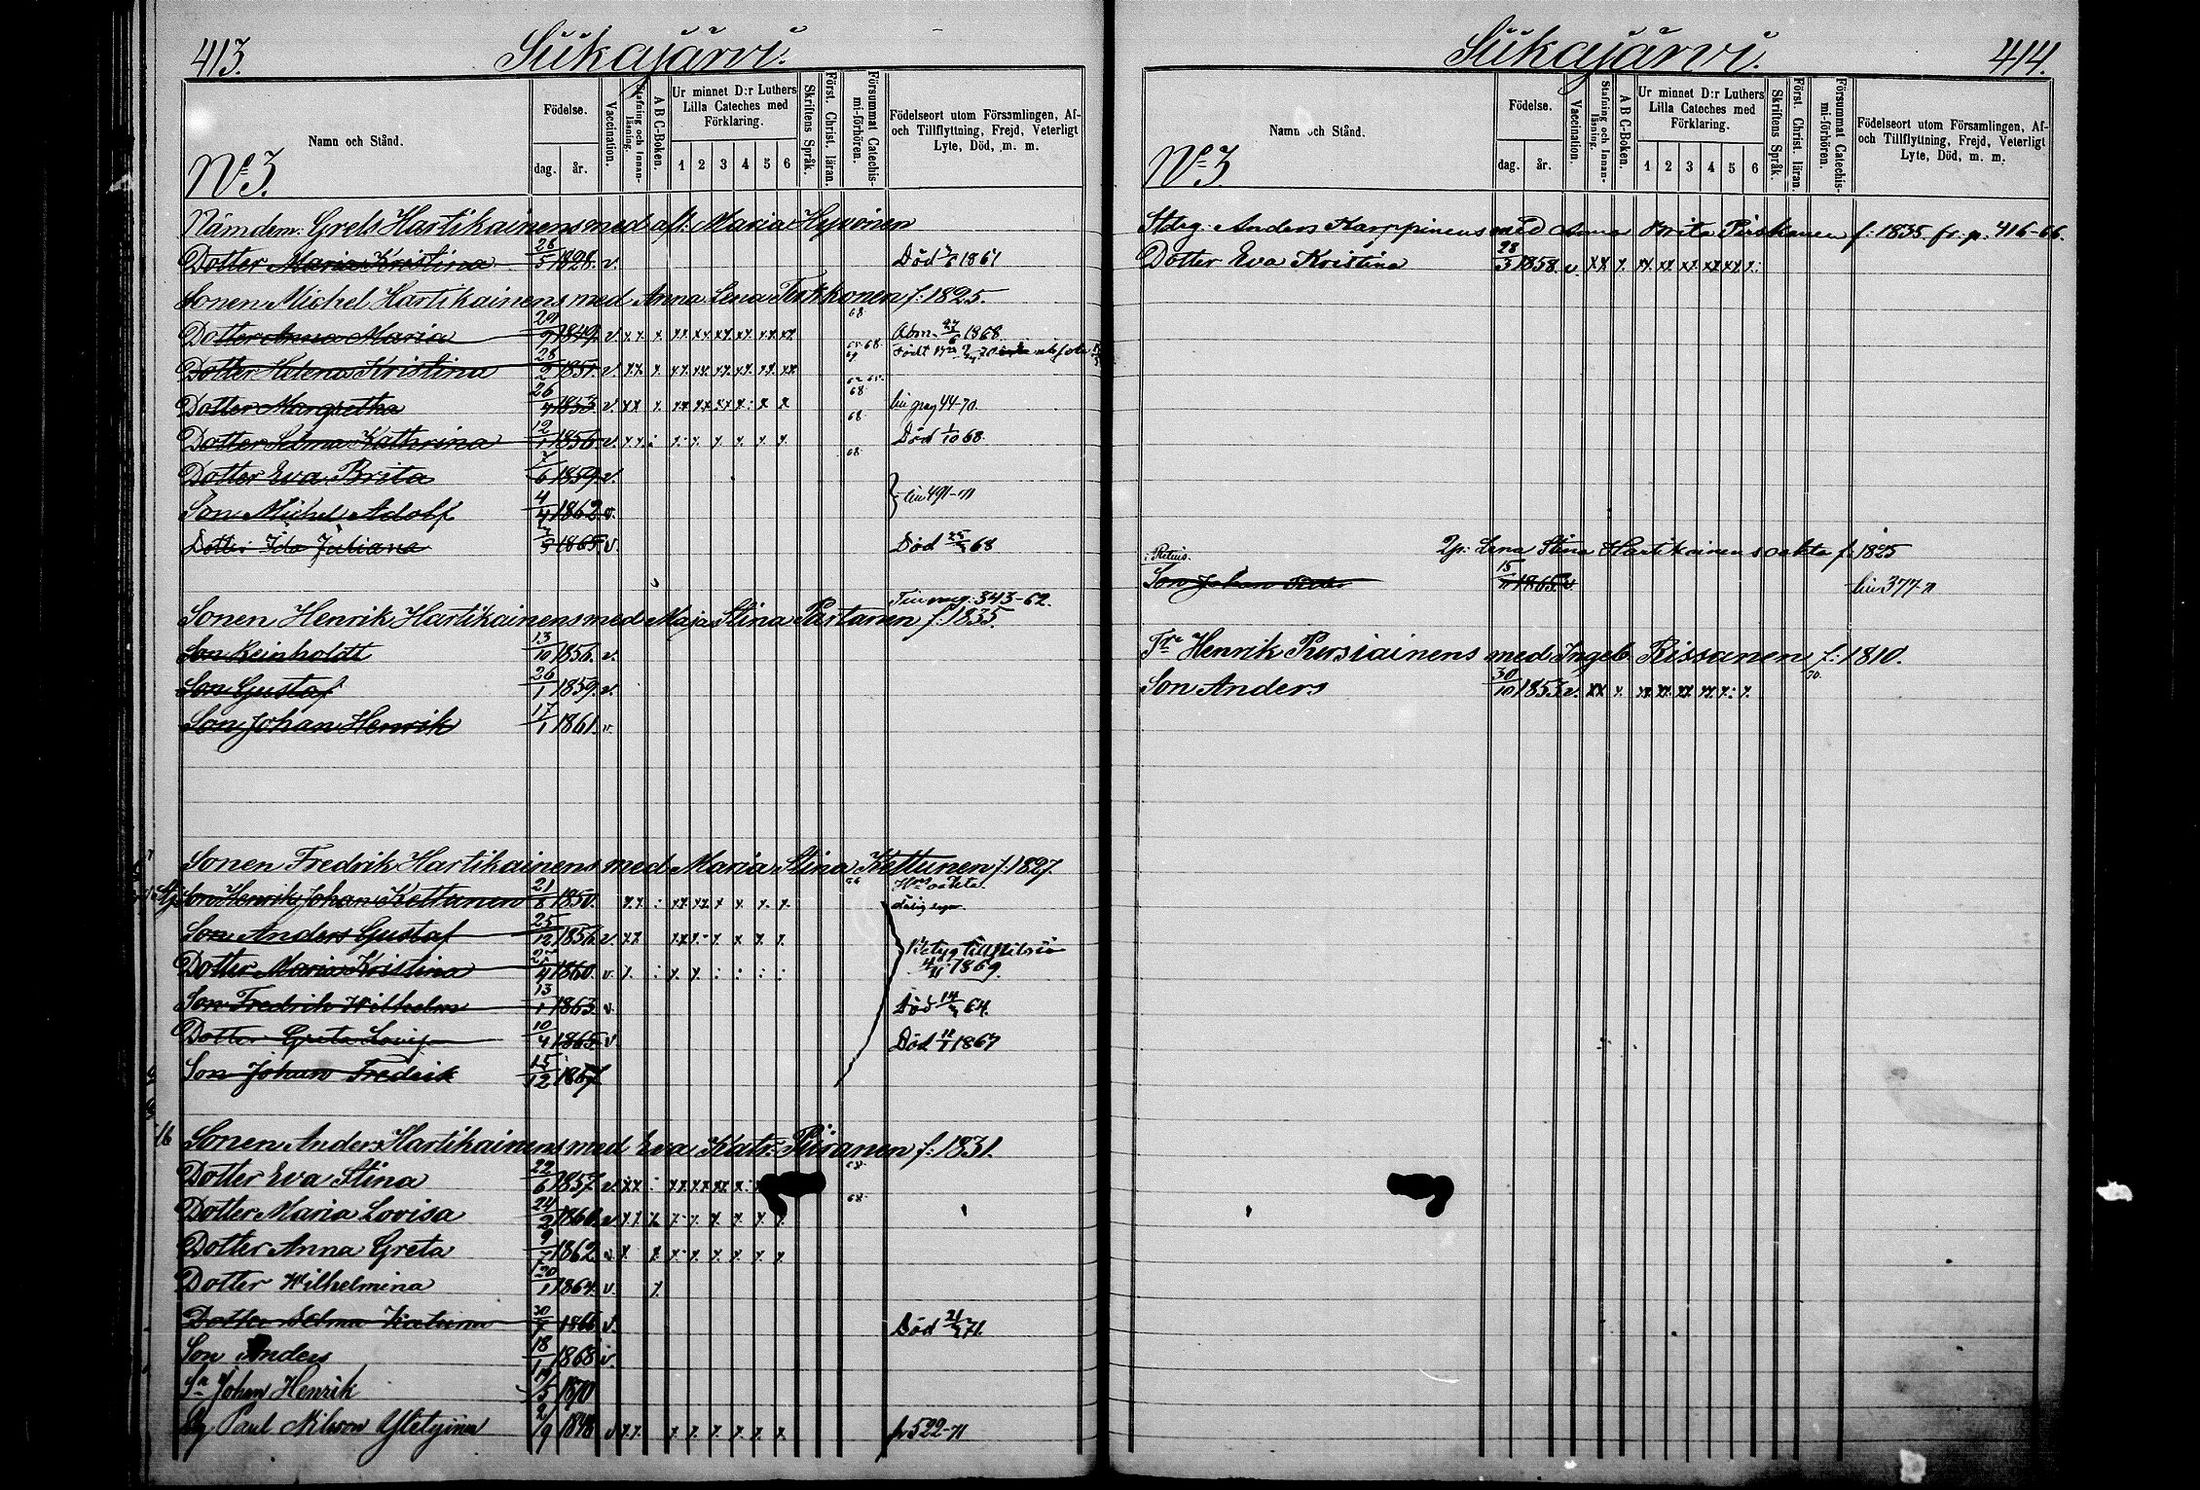 413. Siikajärvi.
Namn och Stånd.
Födelse.
dag. år.
Vaccination.
Stafning och Innanläsning.
A B C-Boken.
Ur minnet D:r Luthers Lilla Cateches med Förklaring.
1 2 3 4 5 6
Skriftens Språk.
Först. Christ. läran.
Försummat Catechismi-förhören.
Födelseort utom Församlingen, Af- och Tillflyttning, Frejd, Veterligt Lyte, Död, m. m.
No 3.
Nämdem: Grels Hartikainens med afl: Maria Hyvönen
Dotter Maria Kristina 28/5 1828. v. Död 1861
Sonen Michel Hartikainens med Anna Lena Tirkkonen f: 1825.
Dotter Anna Maria 29/9 1849. v. 68. 1868.
Dotter Helena Kristina 28/2 1851. v.
Dotter Margretha 26/4 1853 v. 68. 44-70.
Dotter Selma Kathrina 12/1 1856. v. 68. Död 1/10 68.
Dotter Eva Brita 7/6 1859. v. 68.
Son Michel Adolf 4/4 1862 v. 491-71
Dotter Ida Juliana 1865. v. Död 68
343-62.
Sonen Henrik Hartikainens med Maja Stina Partanen f: 1835.
Son Reinholdt 13/10 1856. v.
Son Gustaf 26/1 1859. v.
Son Johan Henrik 17/1 1861. v.
Sonen Fredrik Hartikainens med Maria Stina Kettunen f: 1827.
Son Henrik Johan Kettunen 21/8 1850.
Son Anders Gustaf 25/12 1856. v.
Betyg till Nilsiä 1869.
Dotter Maria Kristina 1860. v.
Son Fredrik Wilhelm 13/1 1863. v. Död 64.
Dotter Greta Lovisa 10/4 1865. v. Död 1867
Son Johan Fredrik 15/12 1867.
16 Sonen Anders Hartikainens med Eva Katr: Piiranen f: 1831.
Dotter Eva Stina 22/6 1857. v. 68.
Dotter Maria Lovisa 24/2 1860. v 68.
Dotter Anna Greta 1862. v
Dotter Wilhelmina 1864. v.
Dotter Selma Katrina 1866. v. Död 71.
Son Anders 1868 v.
Sn Johan Henrik 1870
Paul Nilsson 1848 v p 522-71
Siikajärvi. 414.
Namn och Stånd.
Födelse.
dag. år.
Vaccination.
Stafning och Innanläsning.
A B C-Boken.
Ur minnet D:r Luthers Lilla Cateches med Förklaring.
1 2 3 4 5 6
Skriftens Språk.
Först. Christ. läran.
Försummat Catechismi-förhören.
Födelseort utom Församlingen, Af- och Tillflyttning, Frejd, Veterligt Lyte, Död, m. m.
No 3.
Anders Karppinens med Anna Brita f: 1835. fr. p. 416-66.
Dotter Eva Kristina 28/3 1858. v.
Lena Stina Hartikainens oäkta f: 1825
Son Johan 15/11 1865. v. 377-71
Henrik Pursiainens med Ingeb. Rissanen f: 1810.
Son Anders 30/10 1853. v. 70.